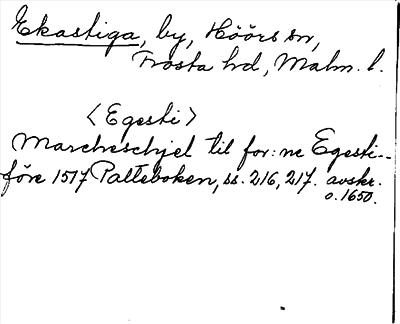 Ekastiga, by, Höörs sn,
Frosta hd, Malm. l.
<Egesti>
Marcheschjel til for:ne Egesti--
före 1517 Palteboken, ss. 216, 217. avskr.
o. 1650.